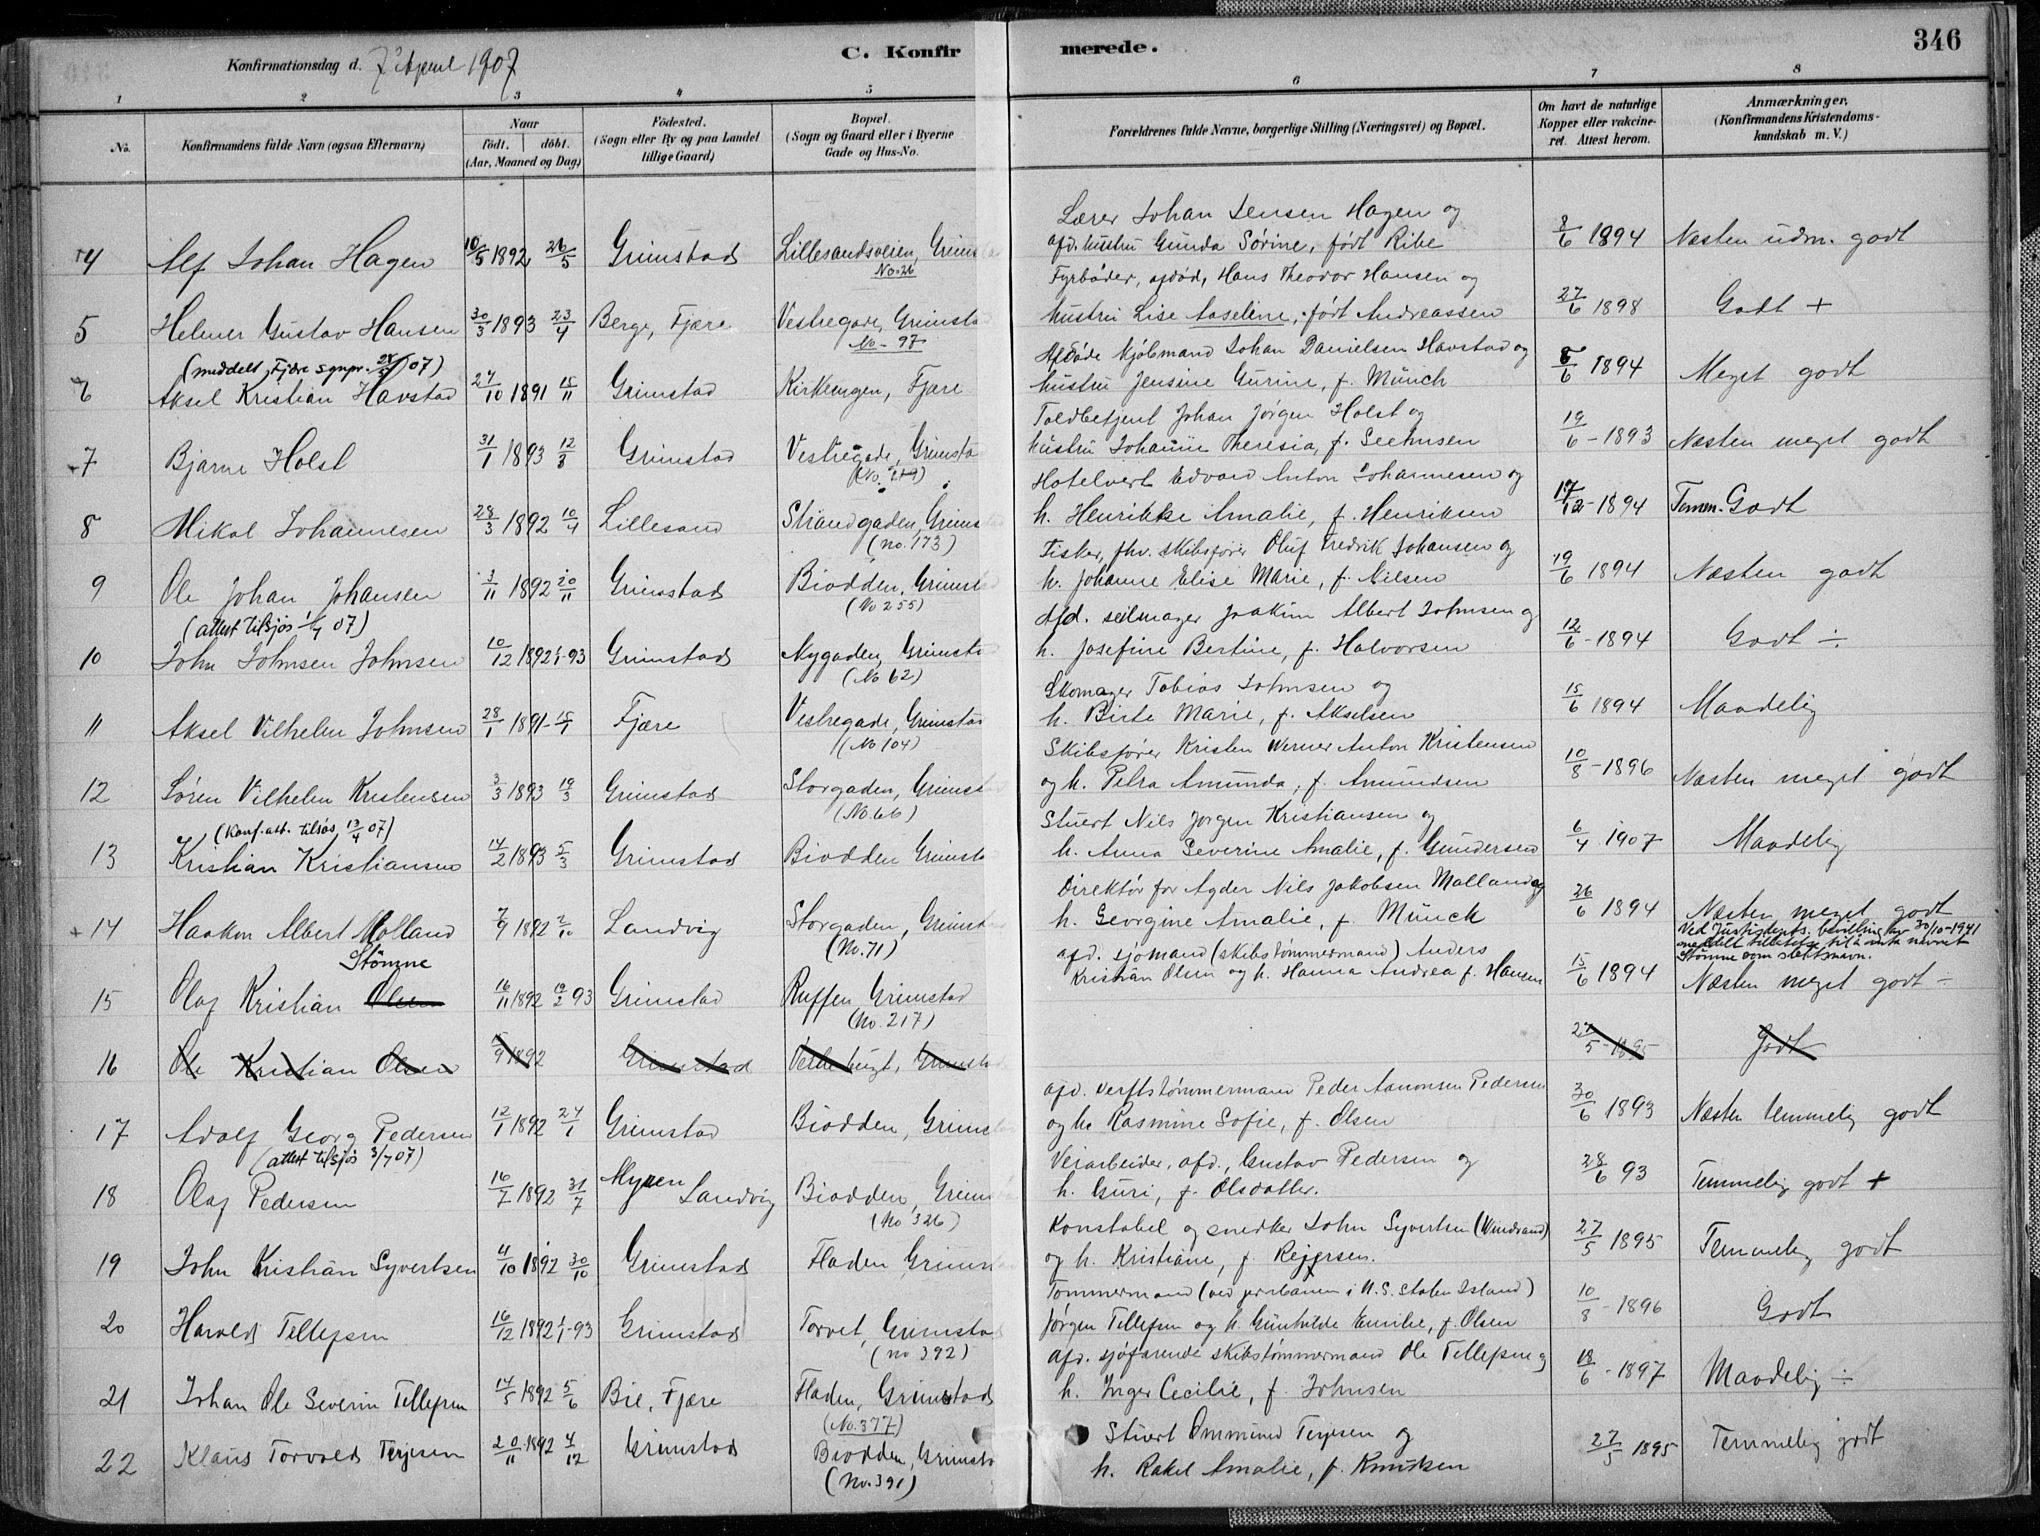 346
Konfirmationsdag d. 7' April 1907
C. Konfirmerede.
1 2 3 4 5 6 7 8
No.
Konfirmandens fulde Navn (ogsaa Efternavn)
Naar
födt. döbt.
(Aar, Maaned og Dag)
Födested.
(Sogn eller By og paa Landet
tillige Gaard)
Bopæl.
(Sogn og Gaard eller i Byerne
Gade og Hus-No.
Forældrenes fulde Navne, borgerlige Stilling (Næringsvei) og Bopæl.
Om havt de naturlige
Kopper eller vakcine-
ret. Attest herom.
Anmærkninger,
(Konfirmandens Kristendoms-
kundskab m. V.)
Lærer Johan Jensen Hagen og
4 Alf Johan Hagen 10/5 1892 26/5 Grimstad Lillesandsveien, Grims afd. hustru Gunda Sørine, født Ribe 8/6 1894 Næsten udm. godt
No. 26
Fyrbøder, afdød, Hans Theodor Hansen og
5 Helmer Gustav Hansen 30/3 1893 23/4 Berge, Fjære Vestregade, Grimsta hustru Lise Aaseline, født Andreassen 27/6 1898 Godt +
No - 97
(meddelt Fjære sgnpr. 07)
Afdøde Kjøbmand Johan Danielsen Havstad og
6 Aksel Kristian Havstad 27/10 1891 15/11 Grimstad Kirkeengen, Fjære hustru Jensine Gurine, f. Münch 8/6 1894 Meget godt
Toldbetjent Johan Jørgen Holst og
7 Bjarne Holst 31/1 1893 12/3 Grimstad Vestregade, Grimsta hustru Johanne Theresia, f. Seehusen 19/6 - 1893 Næsten meget godt
(No. 219)
Hotelvert Edvard Anton Johannesen og
8 Mikal Johannesen 28/3 1892 10/4 Lillesand Strandgaden, Grims h. Henrikke Amalie, f. Henriksen 17/12 - 1894 Temm. Godt
(no. 173)
Fisker, fhv. skibsfører Oluf Fredrik Johansen og
9 Ole Johan Johansen 3/11 1892 20/11 Grimstad Biodden, Grimst h. Johanne Elise Marie, f. Nilsen 19/6 1894 Næsten godt
(No 255)
(attest tilsjøs 1/7 07)
Afd. seilmager Joakim Albert Johnsen og
10 John Johnsen Johnsen 10/12 1892 1/1-93 Grimstad Nygaden, Grimsta h. Josefine Bertine, f. Halvorsen 12/6 - 1894 Godt ÷
(No 62)
Skomager Tobias Johnsen og
11 Aksel Vilhelm Johnsen 28/1 1891 Fjære Vestregade, Grimstad h. Birte Marie, f. Akselsen 15/6 1894 Maadelig
(No 104)
Skibsfører Kristen Werner Anton Kristensen
12 Søren Vilhelm Kristensen 3/3 1893 19/3 Grimstad Storgaden, Grimst og h. Petra Amunda, f. Amundsen 10/8 - 1896 Næsten meget godt
(No. 66)
(Konf. att. tilsøs 13/4 07)
Stuert Nils Jørgen Kristiansen og
13 Kristian Kristiansen 14/2 1893 5/3 Grimstad Biodden Grimsta h. Anna Severine Amalie, f. Gundersen 6/4 1907 Maadelig
Direktør for Agder Nils Jakobsen Molland og
14 Haakon Albert Molland 7/9 1892 2/10 Landvig Storgaden, Grimst h. Georgine Amalie, f. Münch 26/6 1894 Næsten meget godt
(No. 71)
Ved Justisdepts. bevilling av 30/10-1941
meddelt tillatelse til å anta navnet
Stømne som slektsnavn.
Stømne
afd. sjømand (skibstømmermand) Anders
15 Olaf Kristian Olsen 16/11 1892 19/2 93 Grimstad Ruffen Grimstad Kristian Olsen og h. Hanna Andrea f. Hansen 15/6 1894 Næsten meget godt ÷
(No. 217)
16 Ole Kristian Olsen 15/9 1892 Grimstad Grimstad 27/5 - 1895 Godt
afd. verftstømmermand Peder Aanonsen Pedersen
17 Adolf Georg Pedersen 12/1 1892 24/1 Grimstad Biodden, Grimst og h. Rasmine Sofie, f. Olsen 30/6 1893 Næsten temmelig godt
(attest tilsjøs 3/7 07)
Veiarbeider, afd., Gustav Pedersen og
18 Olaf Pedersen 16/7 1892 31/7 Myren Landvig Biodden, Grims h. Guri, f. Olsdatter. 28/6 93 Temmelig godt +
(No 326)
Konstabel og snedker John Syvertsen (Vindsand)
19 John Kristian Syvertsen 4/10 1892 30/10 Grimstad Fladen Grims og h. Kristiane, f. Rejersen. 27/5 1895 Temmelig godt
Tømmermand (ved jernbanen i N. S. Staten Island)
20 Harald Tellefsen 16/12 1892 1/1-93 Grimstad Torvet, Grimstad Jørgen Tellefsen og h. Gunhilde Emilie, f. Olsen 10/8 - 1896 Godt
(no 392)
afd. sjøfarende skibstømmermand Ole Tellefsen og
21 Johan Ole Severin Tellefsen 14/5 1892 5/6 Bie, Fjære Fladen, Grimstad h. Inger Cecilie, f. Johnsen 18/6 - 1897 Maadelig ÷
(No. 377)
Stuert Ommund Terjesen og
22 Klaus Torvald Terjesen 20/11 1892 4/12 Grimstad Biodden, Grimsta h. Rakel Amalie, f. Knudsen 27/5 1895 Temmelig godt
(No. 391)